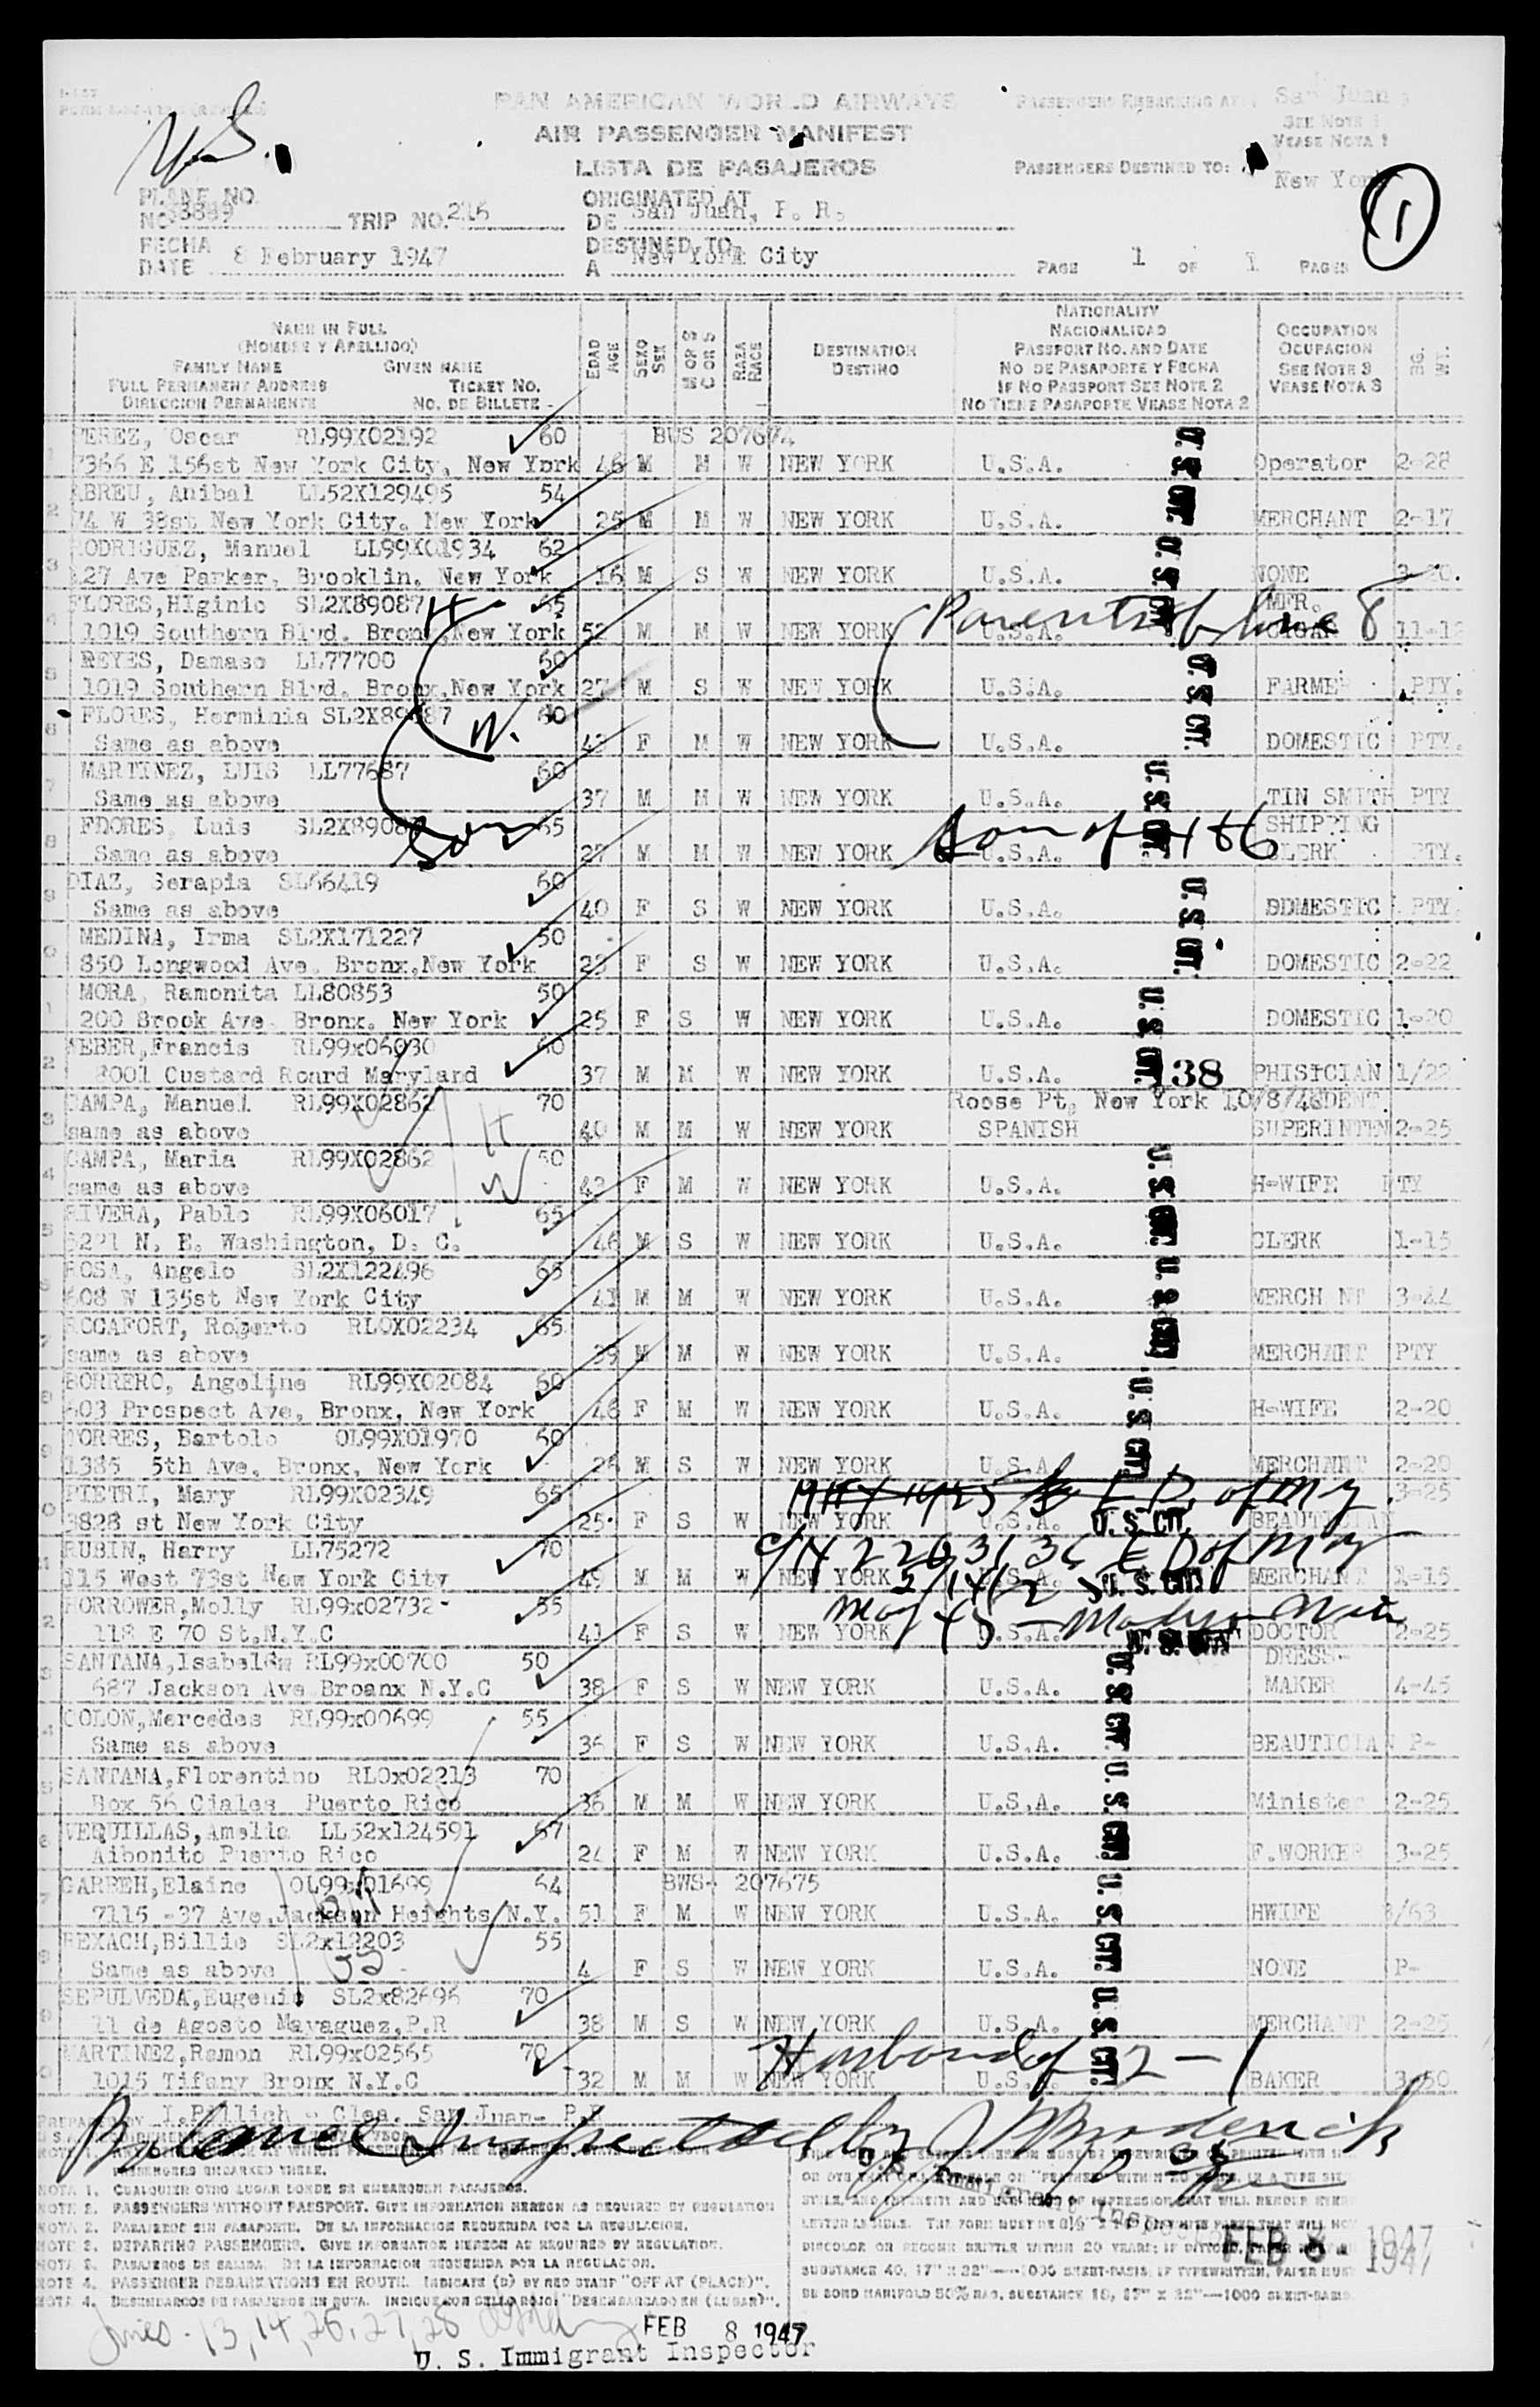 PAN AMERICAN WORLD AIRWAYS
AIR PASSENGER MANIFEST
LISTA DE PASAJEROS
PASSENGERS EMBARKING AT: San Juan
SEE NOTE 1
VEASE NOTA 1
PASSENGERS DESTINED TO:
New York
1
PLANE NO.
NC 3889 TRIP NO. 216
ORIGINATED AT
DE San Juan, P. R.
FECHA
DATE 8 February 1947
DESTINED TO
A New York City
PAGE 1 OF 1 PAGES
NAME IN FULL
(NOMBRE Y APELLIDO)
FAMILY NAME GIVEN NAME
FULL PERMANENT ADDRESS TICKET NO.
DIRECCION PERMANENTE NO. DE BILLETE
EDAD AGE
SEXO SEX
M OR S
C OR S
RAZA RACE
DESTINATION
DESTINO
NATIONALITY
NACIONALIDAD
PASSPORT NO. AND DATE
NO DE PASAPORTE Y FECHA
IF NO PASSPORT SEE NOTE 2
NO TIENE PASAPORTE VEASE NOTA 2
OCCUPATION
OCUPACION
SEE NOTE 3
VEASE NOTA 3
BG. WT.
PEREZ, Oscar RL99X02192 60 BUS 207674
7366 E 156st New York City, New York 46 M M W NEW YORK U.S.A. Operator 2-28
ABREU, Anibal LL52X129495 54
74 W 38st New York City. New York 25 M M W NEW YORK U.S.A. MERCHANT 2-17
RODRIGUEZ, Manuel LL99X01934 62
127 Ave Parker, Brooklin. New York 16 M S W NEW YORK U.S.A. NONE
FLORES, Higinio SL2X89087 H 65 MFR.
1019 Southern Blvd. Bronx New York 52 M M W NEW YORK Parents of line 8 U.S.A. 11-12
REYES, Damaso LL77700 60
1019 Southern Blvd. Bronx, New York 27 M S W NEW YORK U.S.A. FARMER PTY.
FLORES, Herminia SL2X89087 60
Same as above W. 43 F M W NEW YORK U.S.A. DOMESTIC PTY.
MARTINEZ, LUIS LL77687 60
Same as above 37 M M W NEW YORK U.S.A. TIN SMITH PTY
FDORES, Luis SL2X89087 65 SHIPPING
Same as above Son 27 M M W NEW YORK Son of 4 & 6 U.S.A. CLERK PTY.
DIAZ, Serapia SL66419 60
Same as above 40 F S W NEW YORK U.S.A. DDMESTIC PTY.
MEDINA, Irma SL2X171227 50
850 Longwood Ave. Bronx, New York 23 F S W NEW YORK U.S.A. DOMESTIC 2-22
MORA, Ramonita LL80853 50
200 Brook Ave. Bronx. New York 25 F S W NEW YORK U.S.A. DOMESTIC 1-20
WEBER, Francis RL99x06030 60
8001 Custard Roard Maryland 37 M M W NEW YORK U.S.A. 138 PHISICIAN 1/22
CAMPA, Manuel RL99X02862 70 Roose Pt. New York 10/8/46 DENT.
same as above H 40 M M W NEW YORK SPANISH SUPERINTEN 2-25
CAMPA, Maria RL99X02862 50
same as above W 43 F M W NEW YORK U.S.A. H-WIFE PTY
RIVERA, Pablo RL99X06017 65
N. E. Washington, D. C. 46 M S W NEW YORK U.S.A. CLERK 1-15
ROSA, Angelo SL2X122496 65
608 W 135st New York City 41 M M W NEW YORK U.S.A. MERCH NT 3-44
ROCAFORT, Roberto RL0X02234 65
same as above 39 M M W NEW YORK U.S.A. MERCHANT PTY
BORRERO, Angeline RL99X02084 60
603 Prospect Ave, Bronx, New York 46 F M W NEW YORK U.S.A. H-WIFE 2-20
TORRES, Bartolo OL99X01970 60
1385 5th Ave. Bronx, New York 26 M S W NEW YORK U.S.A. MERCHANT 2-20
PIETRI, Mary RL99X02349 65 3-25
3828 st New York City 25 F S W NEW YORK U.S.A. U. S. CIT. BEAUTICIAN
RUBIN, Harry LL75272 70 C/N 2263136 E D of N Y
115 West 73st New York City 49 M M W NEW YORK U.S.A. U. S. CIT. MERCHANT 1-15
BORROWER, Molly RL99x02732 55
118 E 70 St. N.Y.C 41 F S W NEW YORK U.S.A. DOCTOR 2-25
SANTANA, Isabelen RL99x00700 50 DRESS-
687 Jackson Ave Broanx N.Y.C 38 F S W NEW YORK U.S.A. MAKER 4-45
COLON, Mercedes RL99x00699 55
Same as above 36 F S W NEW YORK U.S.A. BEAUTICIAN P-
SANTANA, Florentino RL0x02213 70
Box 56 Ciales Puerto Rico 36 M M W NEW YORK U.S.A. Minister 2-25
VEQUILLAS, Amelia LL52x124591 67
Aibonito Puerto Rico 24 F M W NEW YORK U.S.A. F.WORKER 3-25
GAREEH, Elaine OL99x01699 64 BWS- 207675
7115 -37 Ave. Jackson Heights N.Y. 51 F M W NEW YORK U.S.A. HWIFE 3/63
REXACH, Billie SL2x12203 55
Same as above 4 F S W NEW YORK U.S.A. NONE P-
SEPULVEDA, Eugenio SL2x82696 70
11 de Agosto Mayaguez, P.R 38 M S W NEW YORK U.S.A. MERCHANT 2-25
MARTINEZ, Ramon RL99x02565 70 Husband of 2-1
1015 Tifany Bronx N.Y.C 32 M M W NEW YORK U.S.A. BAKER 3-50
U. S. CIT.
PREPARED BY San Juan- P.R
Balance Inspected by J Broderick
PASSENGERS EMBARKED THERE.
NOTA 1. CUALQUIER OTRO LUGAR DONDE SE EMBARQUEN PASAJEROS.
NOTE 2. PASSENGERS WITHOUT PASSPORT. GIVE INFORMATION HEREON AS REQUIRED BY REGULATION
NOTA 2. PASAJEROS SIN PASAPORTE. DE LA INFORMACION REQUERIDA POR LA REGULACION.
NOTE 3. DEPARTING PASSENGERS. GIVE INFORMATION HEREON AS REQUIRED BY REGULATION.
NOTA 3. PASAJEROS DE SALIDA. DE LA INFORMACION REQUERIDA POR LA REGULACION.
NOTE 4. PASSENGER DEBARKATIONS EN ROUTE. INDICATE (D) BY RED STAMP "OFF AT (PLACE)".
NOTA 4. DESEMBARCOS DE PASAJEROS EN RUTA. INDIQUE CON SELLO ROJO: "DESEMBARCADO EN (LUGAR)".
FEB 8 - 1947
SUBSTANCE 40, 17" X 22"—1000 SHEET-BASIS; IF TYPEWRITTEN, PAPER MUST
BE BOND MANIFOLD 50% RAG, SUBSTANCE 16, 17" X 22"—1000 SHEET-BASIS.
Lines - 13, 14, 26, 27, 28
FEB 8 1947
U. S. Immigrant Inspector